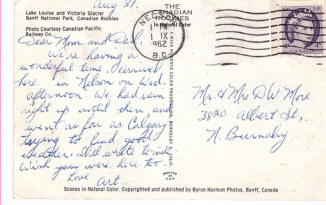 Aug 31.
Lake Louise and Victoria Glacier
Banff National Park, Canadian Rockies
Photo Courtesy Canadian Pacific
Railway Co.
THE
CANADIAN
ROCKIES
In Natural Color
NELSON
IX
1962
B.C.
Dear Mom and Dad
We're having a
wonderful time. Arrived
here in Nelson on Wed.
afternoon. We had rain
right up until then and
went as far as Calgary
trying to find good
weather.
Wish you were here too.
Love
Art.
Mr. & Mrs D W More
3820 Albert St,
N. Burnaby
Scenes in Natural Color. Copyrighted and published by Byron Harmon Photos, Banff, Canada